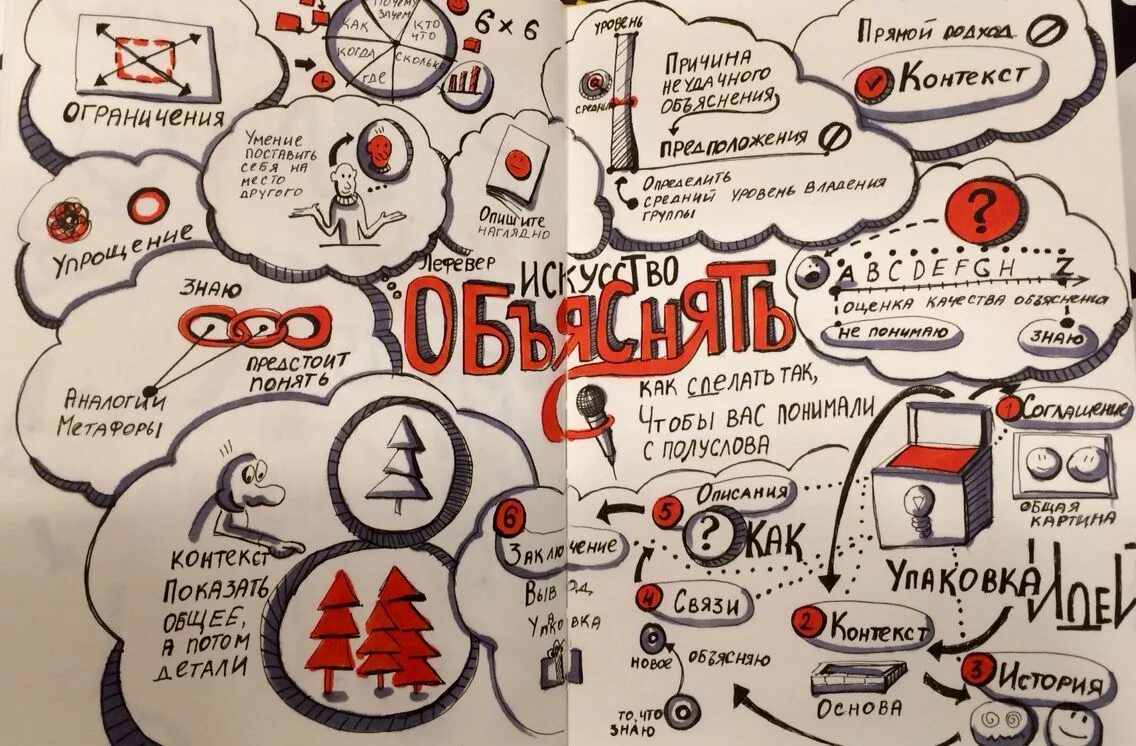 ОГРАНИЧЕНИЯ
ПОЧЕМУ
ЗАЧЕМ
КАК
КТО
ЧТО
КОГДА
СКОЛЬКО
ГДЕ
6 × 6
УМЕНИЕ
ПОСТАВИТЬ
СЕБЯ НА
МЕСТО
ДРУГОГО
ОПИШИТЕ
НАГЛЯДНО
УПРОЩЕНИЕ
ЗНАЮ
ПРЕДСТОИТ
ПОНЯТЬ
АНАЛОГИИ
МЕТАФОРЫ
КОНТЕКСТ
ПОКАЗАТЬ
ОБЩЕЕ,
А ПОТОМ
ДЕТАЛИ
ЛЕФЕВЕР
ИСКУССТВО
ОБЪЯСНЯТЬ
КАК СДЕЛАТЬ ТАК,
ЧТОБЫ ВАС ПОНИМАЛИ
С ПОЛУСЛОВА
УРОВЕНЬ
СРЕДНИЙ
ПРИЧИНА
НЕУДАЧНОГО
ОБЪЯСНЕНИЯ
ПРЕДПОЛОЖЕНИЯ
ОПРЕДЕЛИТЬ
СРЕДНИЙ УРОВЕНЬ ВЛАДЕНИЯ
ГРУППЫ
ПРЯМОЙ ПОДХОД
КОНТЕКСТ
?
A B C D E F G H Z
ОЦЕНКА КАЧЕСТВА ОБЪЯСНЕНИЯ
НЕ ПОНИМАЮ
ЗНАЮ
УПАКОВКА ИДЕЙ
1 СОГЛАШЕНИЕ
ОБЩАЯ
КАРТИНА
2 КОНТЕКСТ
ОСНОВА
3 ИСТОРИЯ
4 СВЯЗИ
НОВОЕ
ОБЪЯСНЯЮ
ТО, ЧТО
ЗНАЮ
5 ОПИСАНИЯ
? КАК
6
ЗАКЛЮЧЕНИЕ
ВЫВОД,
УПАКОВКА